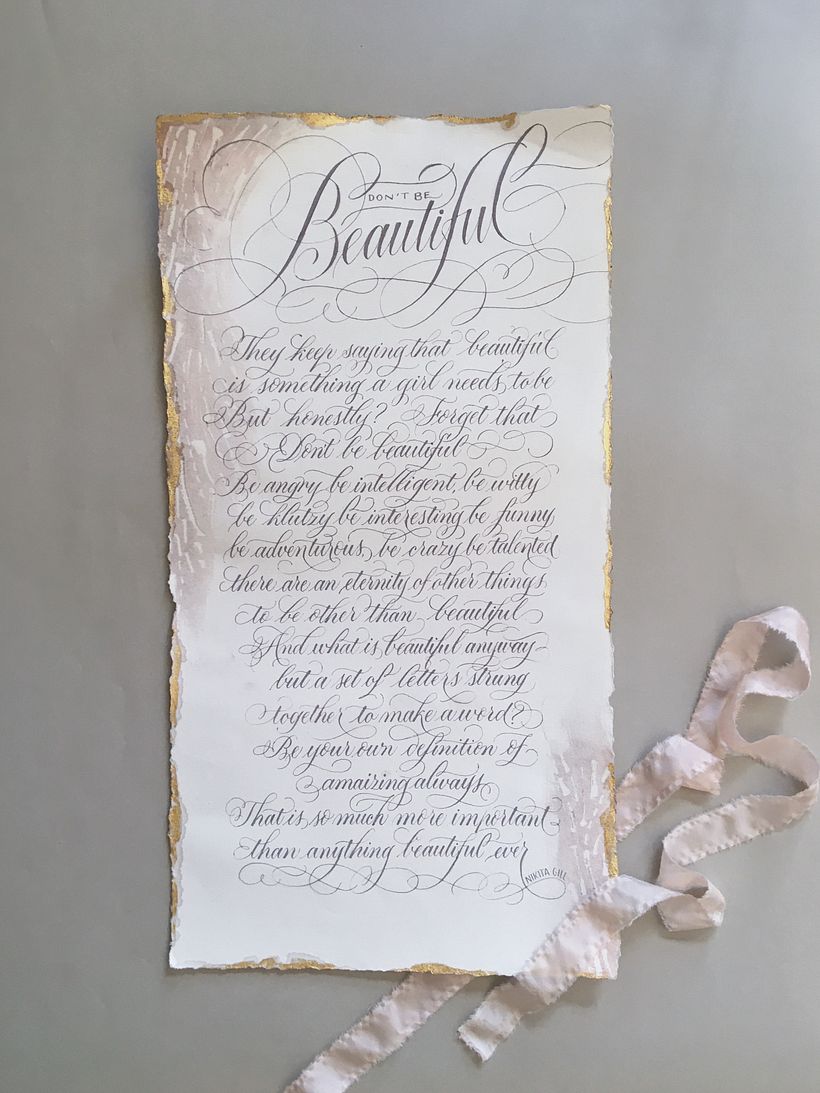 DON'T BE
Beautiful
They keep saying that beautiful
is something a girl needs to be
But honestly? Forget that
Don't be beautiful
Be angry be intelligent, be witty
be klutzy be interesting be funny
be adventurous, be crazy be talented
there are an eternity of other things
to be other than beautiful
And what is beautiful anyway-
but a set of letters strung
together to make a word?
Be your own definition of
amaizing always
That is so much more important
than anything beautiful, ever
NIKITA GILL